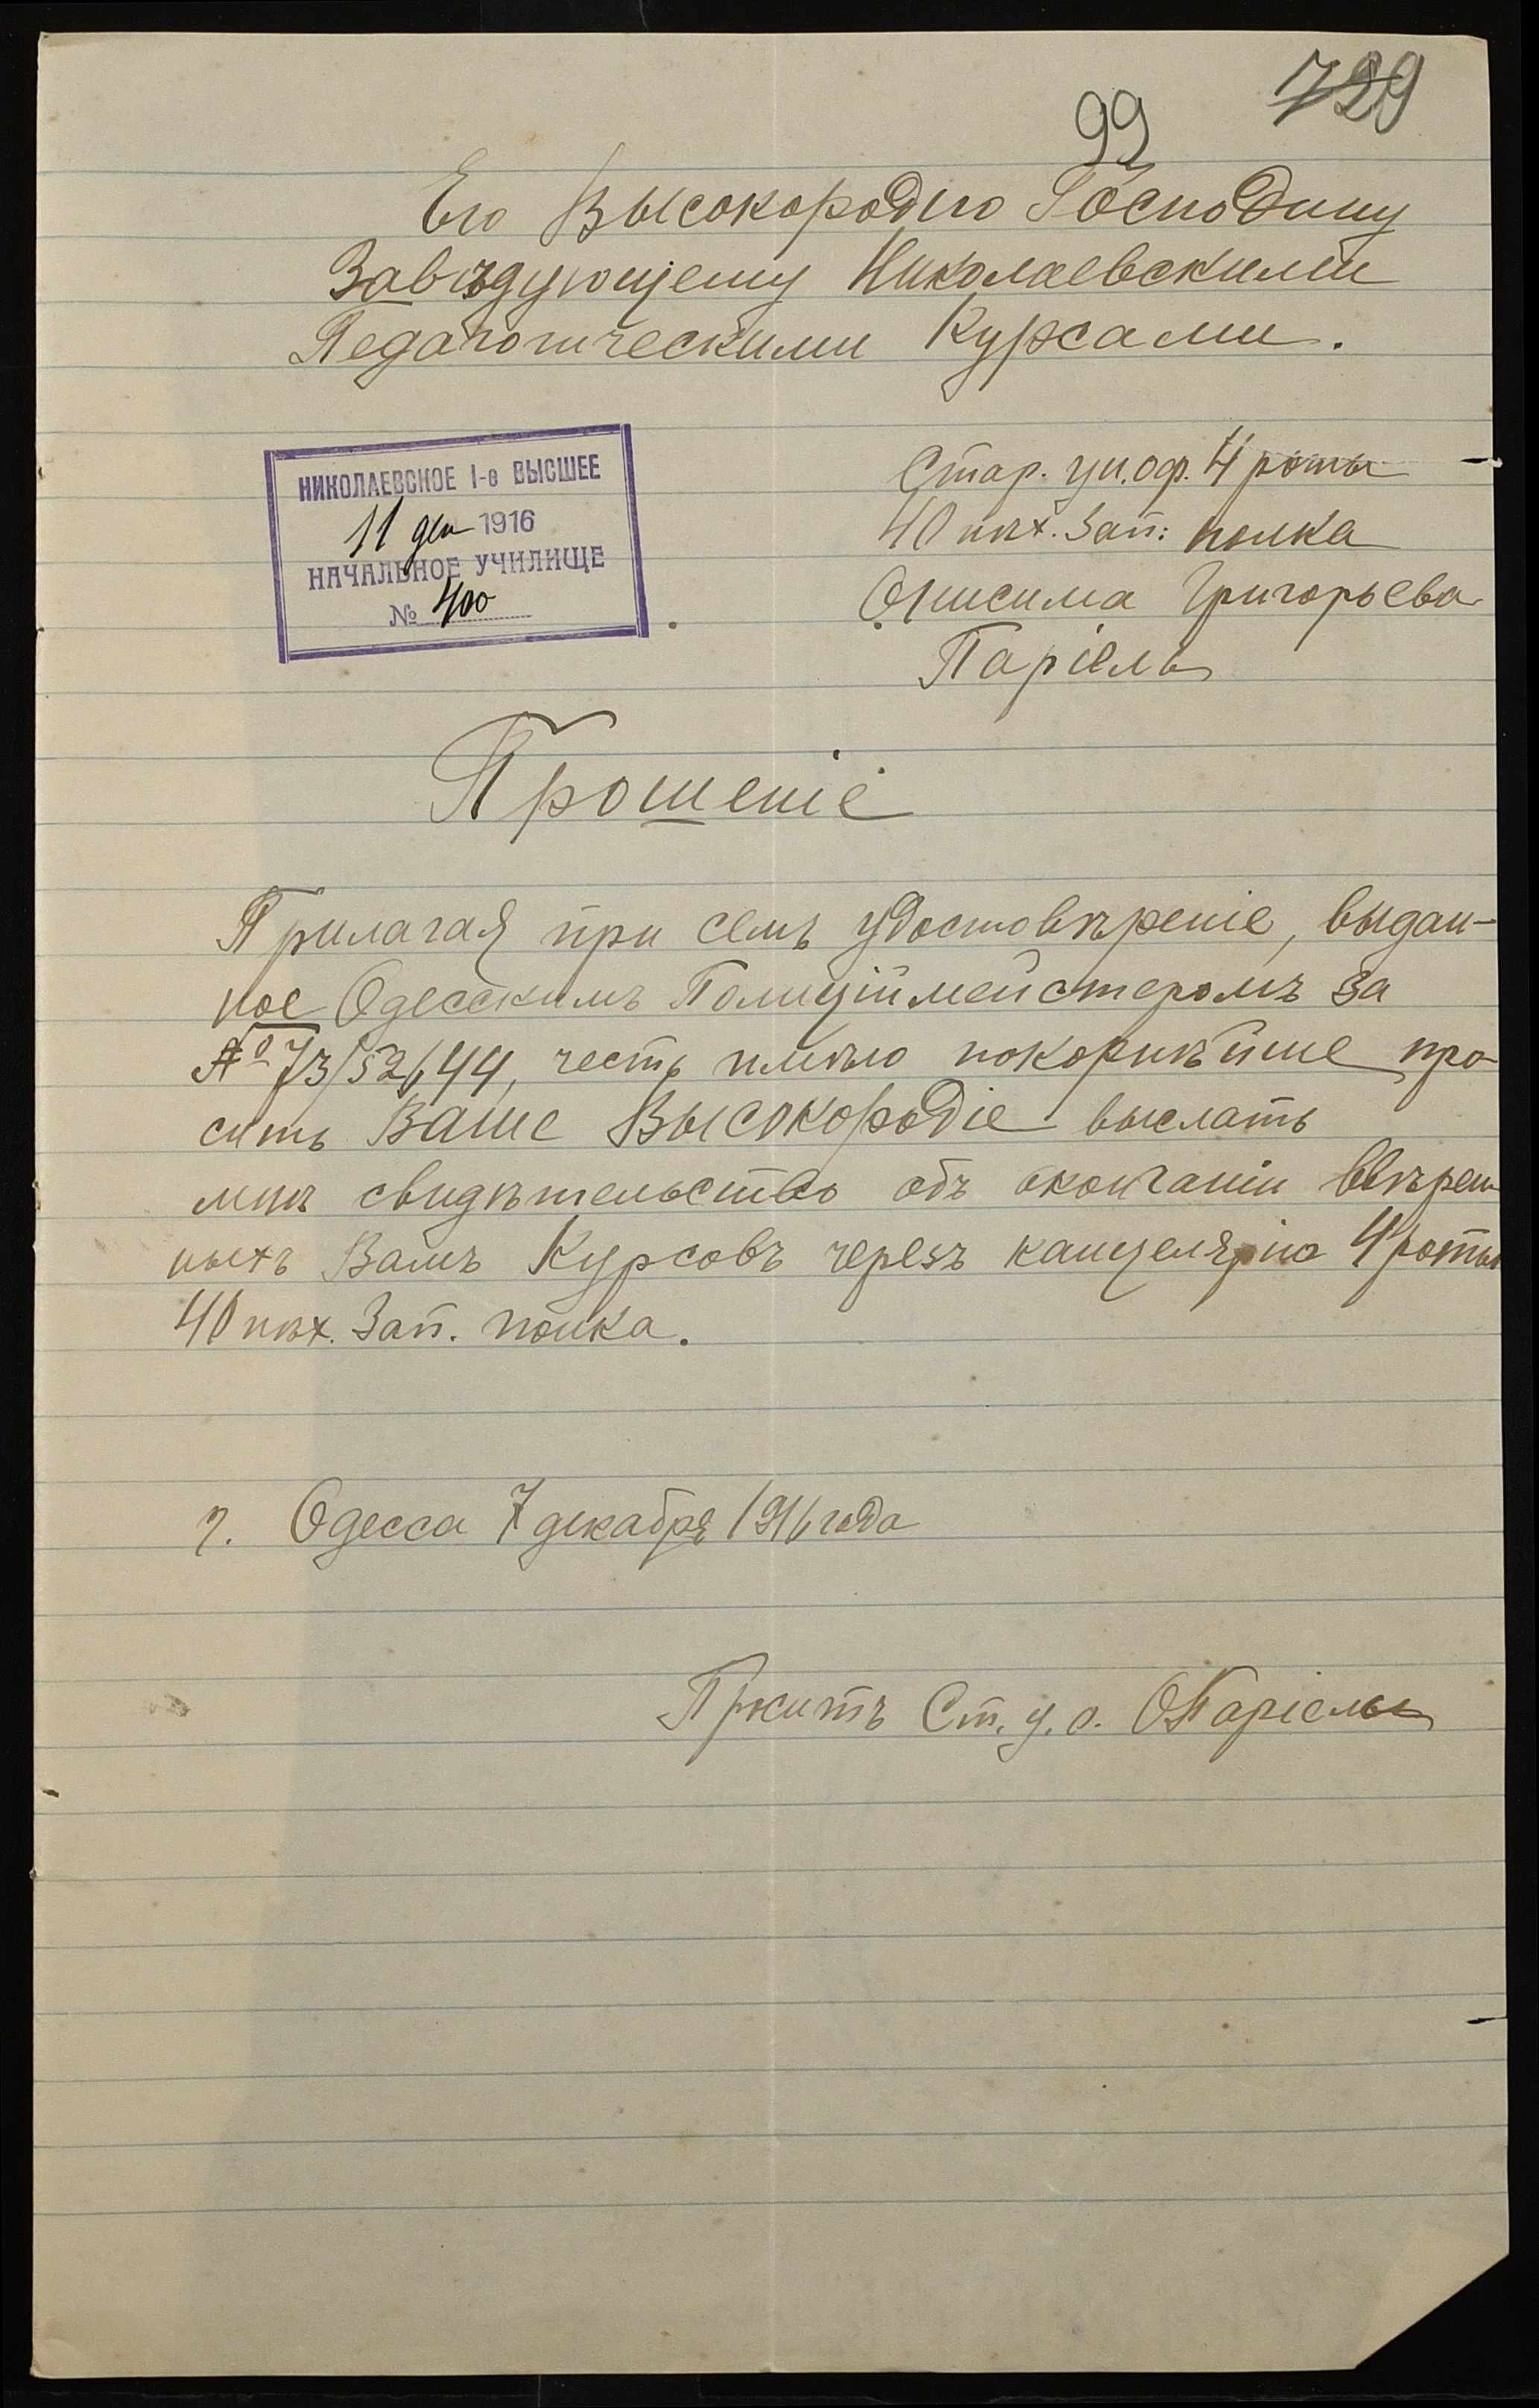 99 729
Его Высокородію Господину
Завѣдующему Николаевскими
Педагогическими Курсами.
НИКОЛАЕВСКОЕ I-е ВЫСШЕЕ
11 дек 1916
НАЧАЛЬНОЕ УЧИЛИЩЕ
№ 400
Стар. ун. оф. 4 роты
40 пѣх. Зап: полка
Онисима Григорьева
Паріель
Прошеніе
Прилагая при семъ удостовѣреніе, выдан-
ное Одесскимъ Полиціймейстеромъ за
№ 73/52644, честь имѣю покорнѣйше про-
сить Ваше Высокородіе выслать
мнѣ свидѣтельство объ окончаніи ввѣрен
ныхъ Вамъ Курсовъ черезъ канцелярію 4 роты
40 пѣх. Зап. полка.
г. Одесса 7 декабря 1916 года
Проситъ Ст. у. о. ОПаріель